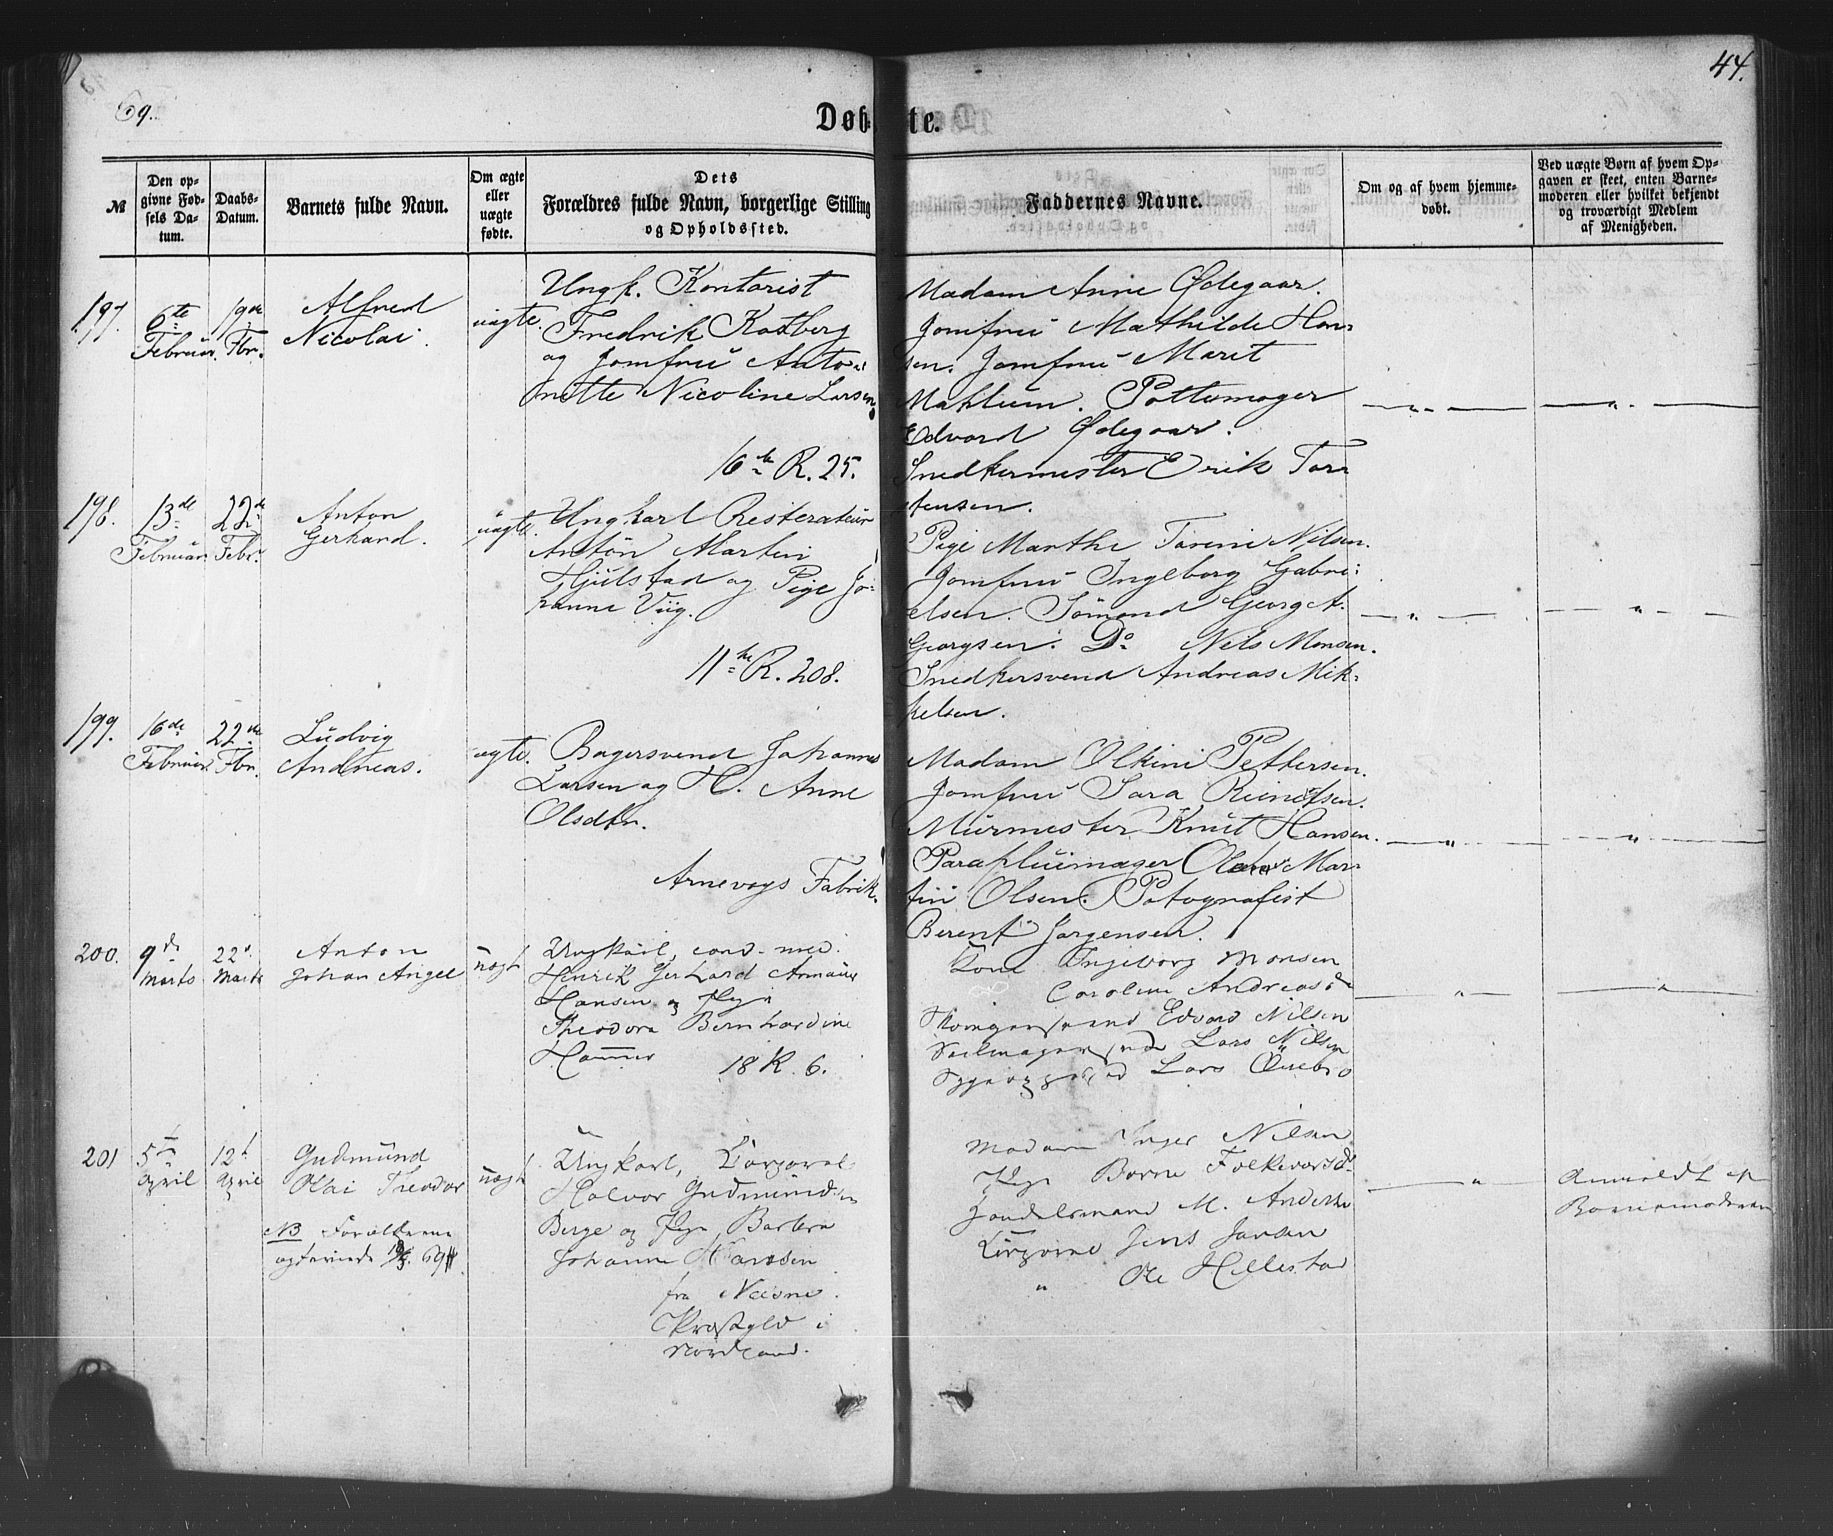 69.
44.
Døbte.
№
Den opgivne Fødsels Datum.
Daabs-Datum.
Barnets fulde Navn.
Om ægte eller uægte fødte.
Dets Forældres fulde Navn, borgerlige Stilling og Opholdssted.
Faddernes Navne.
Om og af hvem hjemmedøbt.
Ved uægte Børn af hvem Opgaven er skeet, enten Barnemoderen eller hvilket bekjendt og troværdigt Medlem af Menigheden.
197.
6te Februar.
19de Fbr.
Alfred
Nicolai.
uægte.
Ungk. Kontorist
Fredrik
og Jomfru Anto-
nette Nicoline Larsen
16de R. 25.
Madam Anne Ødegaar.
Jomfru Mathilde Han-
sen. Jomfru Marit
Mahlum. Pottemager
Edvard Ødegaar.
Snedkermester Erik Tor-
stensen.
198.
13de Februar.
22de Febr.
Anton
Gerhard.
uægte.
Ungkarl Restauratør
Anton Martin
Hjulstad og Pige Jo-
hanne Viig.
11te R. 208.
Pige Marthe Torine Nilsen.
Jomfru Ingeborg Gabri-
elsen. Sømand Georg A.
Georgsen. Do Nils Monsen.
Snedkersvend Andreas Mik-
kelsen.
199.
16de Februar.
22de Fbr.
Ludvig
Andreas.
ægte.
Bagersvend Johannes
Larsen og H. Anne
Olsdtr.
Arnevogs Fabrik.
Madam Olkine Pettersen.
Jomfru Sara
Murmester Knut Hansen.
Parapluimager Mar-
tin Olsen. Potografist
Berent Jørgensen.
200.
9de Marts
22d Marts
Anton
Johan Angel
uægte
Ungkarl, cand. med.
Henrik Gerhard Armauer
Hansen og Pige
Theodora Bernhardine
Hammer
18 R. 6.
Kone Ingeborg Monsen
Caroline Andreasd
Edvard Nilsen
Seilmagersvend Lars Nilsen
Lars
201
5te April
12te April
Gudmund
Olai Theodor
NB Forældrene
uægte
Ungkarl, Korporal
Halvor Gudmundsen
Berge og Pige Barbra
Johanne Hansen
fra Næsne
Præstgjeld i
Nordland.
Madam Inger Nilsen
Pige Borne Folkevorsd.
Handelsmand M. Andersen
Jens Jansen
" Ole Hillestad
Anmeldt af
Barnemoderen